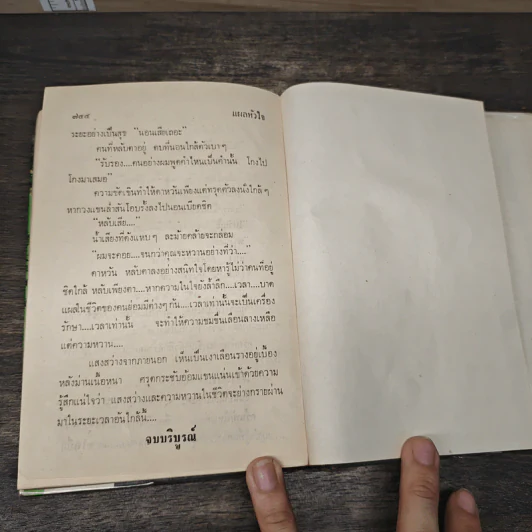 ๗๔๔ แผลหัวใจ
ระยะอย่างเป็นสุข "นอนเสียเถอะ"
คนที่หลับตาอยู่ ตบที่นอนใกล้ตัวเบา ๆ
"รับรอง....คนอย่างผมพูดคำไหนเป็นคำนั้น โกงไป
โกงมาเสมอ"
ความขัดเขินทำให้ตาหวันเพียงแต่ทรุดตัวลงนั่งใกล้ ๆ
หากวงแขนล่ำสันโอบรั้งลงไปนอนเบียดชิด
"หลับเสีย...."
น้ำเสียงที่ดังแหบ ๆ ละม้ายคล้ายจะกล่อม
"ผมจะคอย....จนกว่าคุณจะหวานอย่างที่ว่า...."
ตาหวัน หลับตาลงอย่างสนิทใจโดยหารู้ไม่ว่าคนที่อยู่
ชิดใกล้ หลับเพียงตา....หากความในใจยังล้ำลึก....เวลา....บาด
แผลในชีวิตของคนย่อมมีต่าง ๆ กัน....เวลาเท่านั้นจะเป็นเครื่อง
รักษา....เวลาเท่านั้น จะทำให้ความขมขื่นเลือนลางเหลือ
แต่ความหวาน....
แสงสว่างจากภายนอก เห็นเป็นเงาเลือนรางอยู่เบื้อง
หลังม่านเนื้อหนา ครุฑกระชับอ้อมแขนแน่นเข้าด้วยความ
รู้สึกแน่ใจว่า แสงสว่างและความหวานในชีวิตจะย่างกรายผ่าน
มาในระยะเวลาอันใกล้นี้....
จบบริบูรณ์